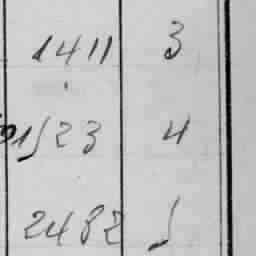 1411 3
1523 4
2482 5